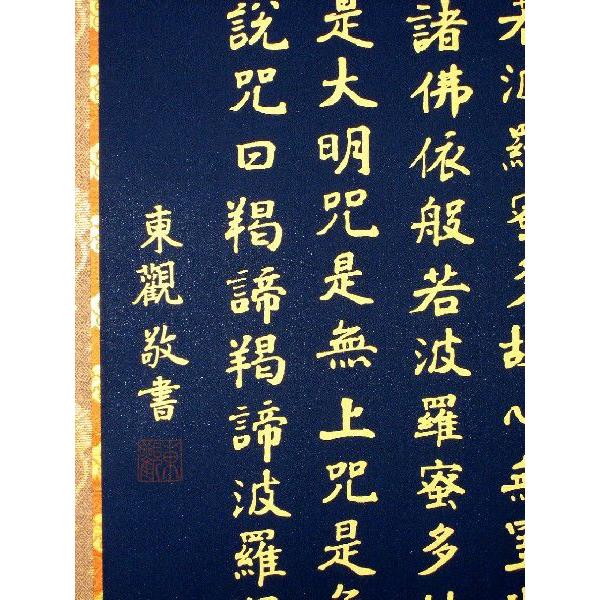 若波羅蜜多故心無罣
諸佛依般若波羅蜜多
是大明咒是無上咒是
説咒曰羯諦羯諦波羅
東觀敬書